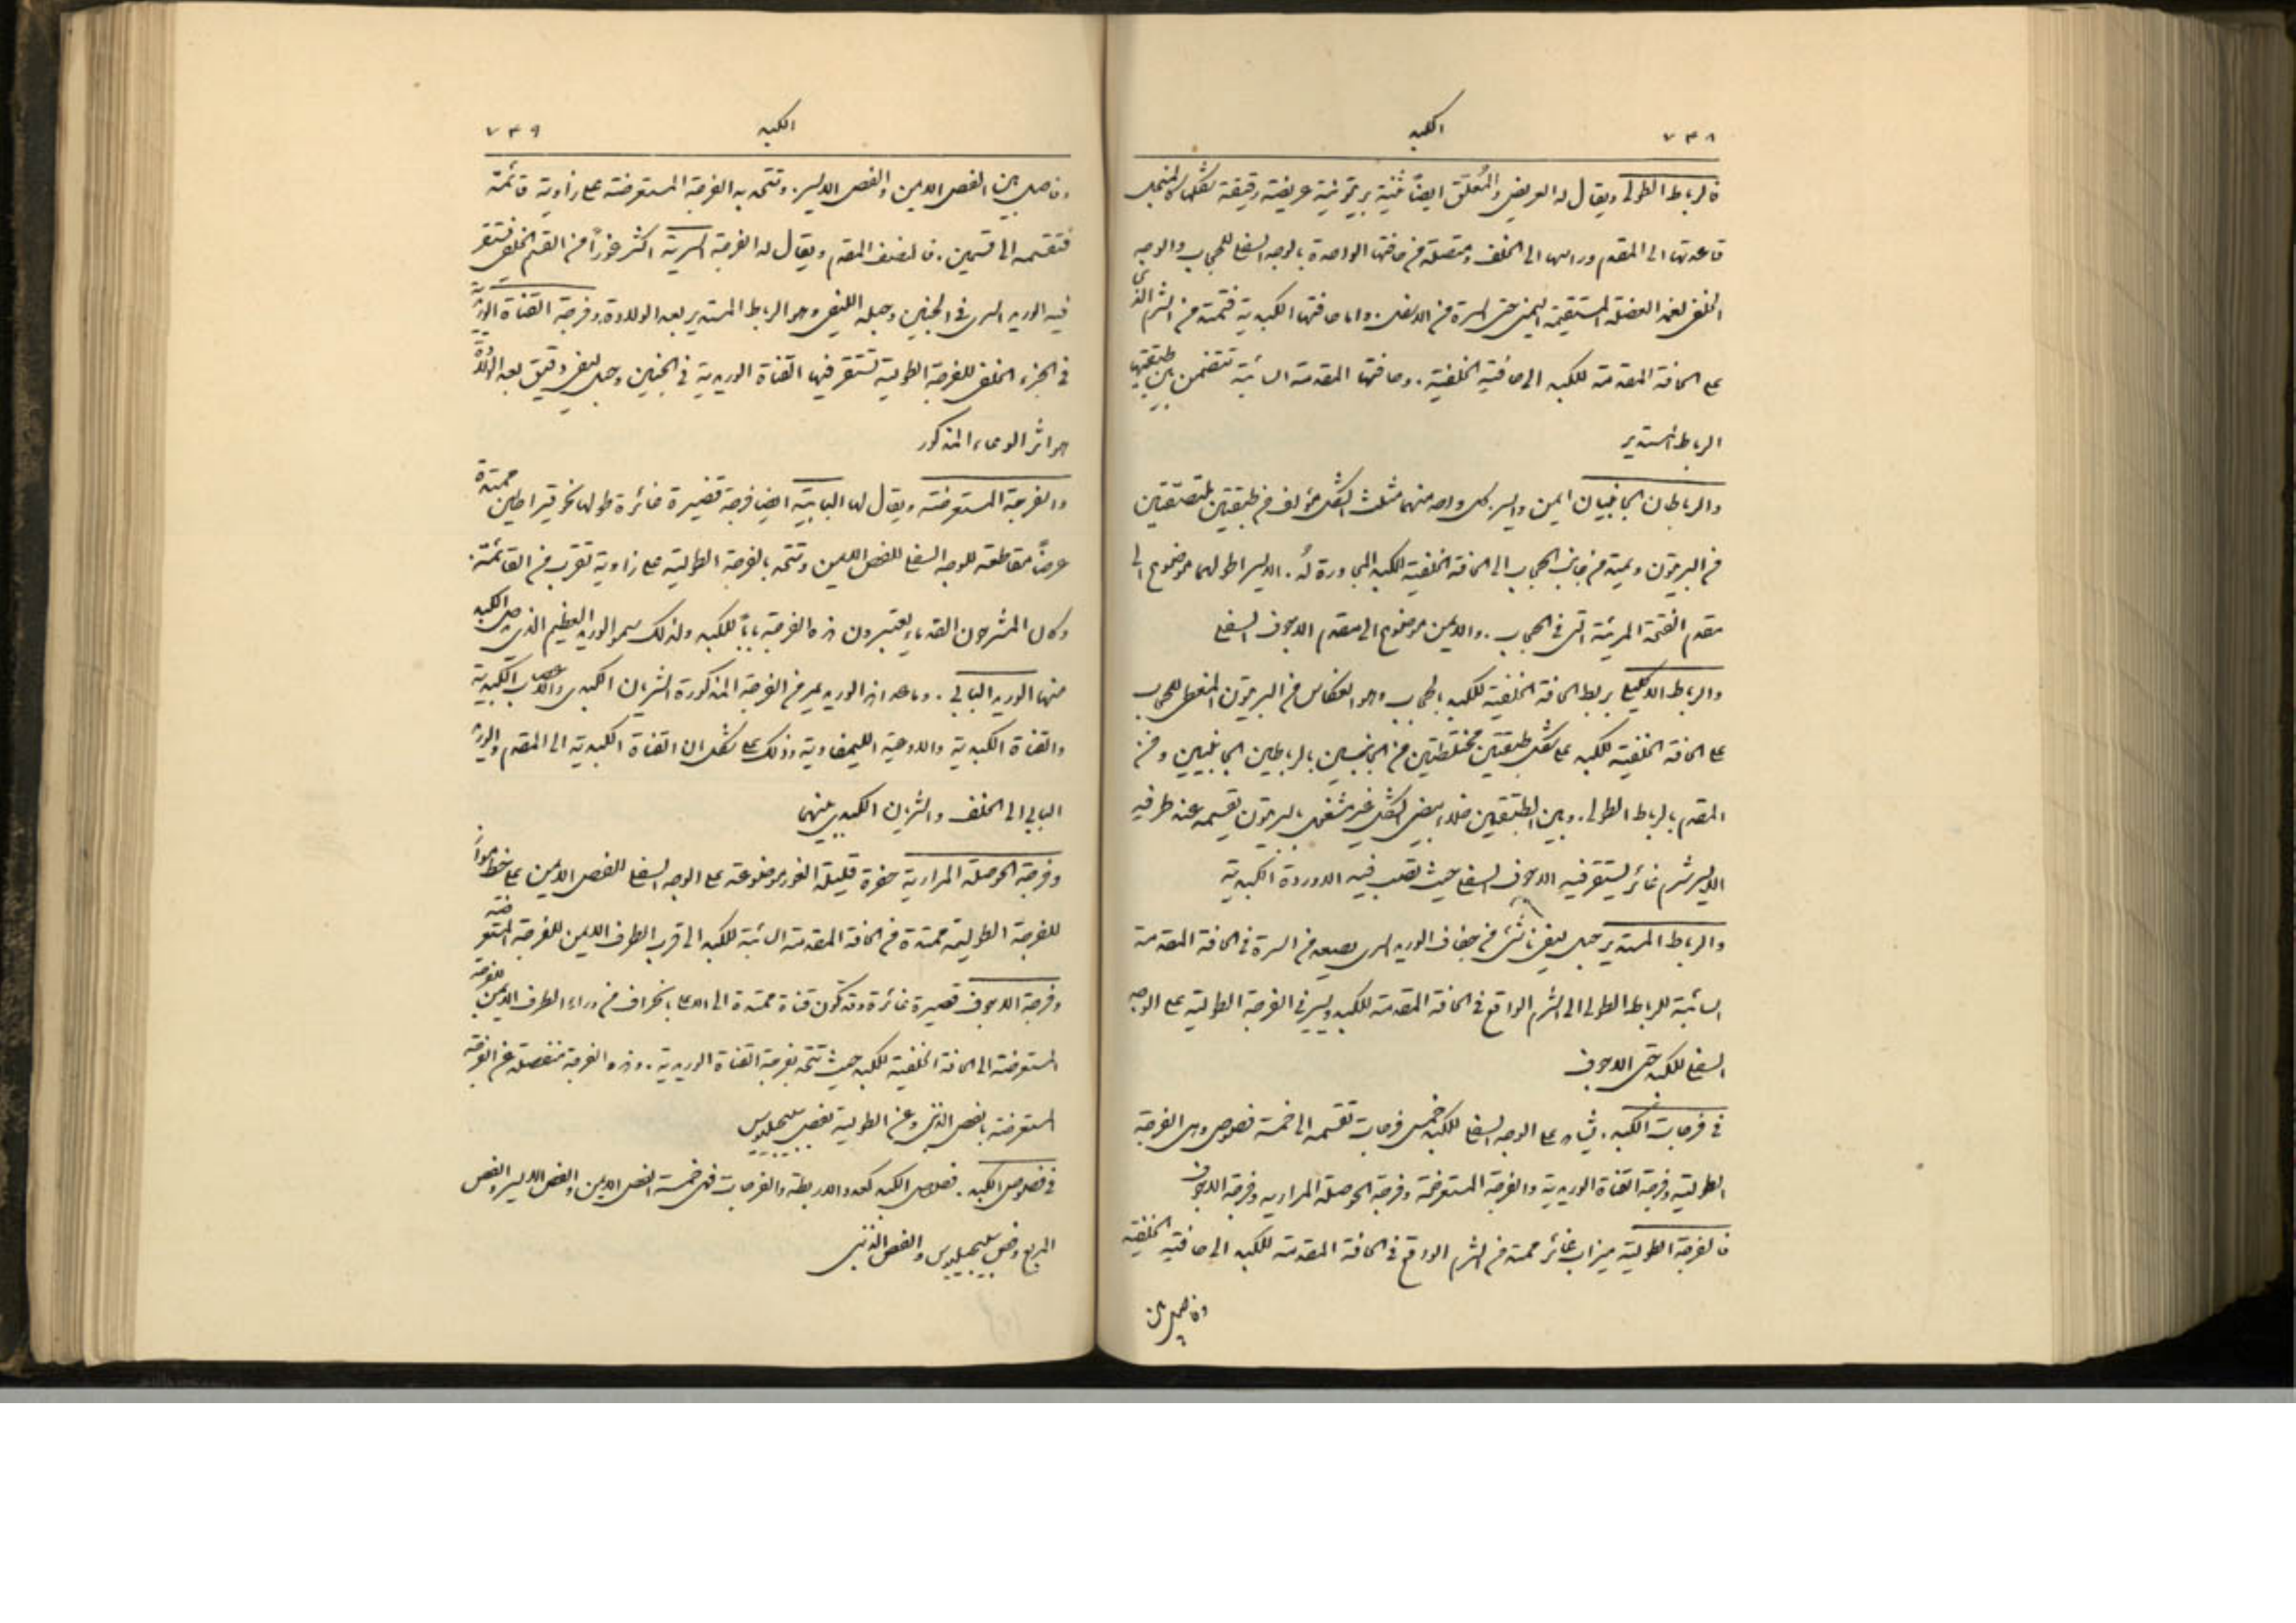 ٧٣٨
الكبد
فالرباط الطولي ويقال له العريض والمُعلِّق ايضاً ثنية بريتونية عريضة رقيقة شكلها كالمنجل
قاعدتها الى المقدم وراسها الى الخلف ومتصلة من حافتها الواحدة بالوجه السفلي للحجاب والوجه
الخلفي لغمد العضلة المستقيمة اليمنى حتى السرة من الاسفل. واما حافتها الكبدية فممتدة من الشرم الذي
على الحافة المقدمة للكبد الى حافته الخلفية. وحافتها المقدمة السائبة تتضمن بين طبقتيها
الرباط المستدير
والرباطان الجانبيان ايمن وايسر كل واحد منهما مثلث الشكل مؤلف من طبقتين ملتصقتين
من البريتون ويمتد من جانب الحجاب الى الحافة الخلفية للكبد المجاورة له. الايسر اطولهما موضوع الى
مقدم الفتحة المريئية التي في الحجاب. والايمن موضوع الى مقدم الاجوف السفلي
والرباط الاكليلي يربط الحافة الخلفية للكبد بالحجاب وهو انعكاس من البريتون المغطي للحجاب
على الحافة الخلفية للكبد على شكل طبقتين مختلطتين من الجانبين بالرباطين الجانبيين ومن
المقدم بالرباط الطولي. وبين الطبقتين خلاء بيضي الشكل غير مشغول بالبريتون تقسمه عند طرفيه
الايسر شرم غائر يستقر فيه الاجوف السفلي حيث تصب فيه الاوردة الكبدية
والرباط المستدير حبل ليفي ناشئ من جفاف الوريد السري يصعد من السرة في الحافة المقدمة
السائبة للرباط الطولي الى الشرم الواقع في الحافة المقدمة للكبد ويسير في الفرجة الطولية على الوجه
السفلي للكبد حتى الاجوف
في فرجات الكبد. يشاهد على الوجه السفلي للكبد خمس فرجات تقسمه الى خمسة فصوص وهي الفرجة
الطولية وفرجة القناة الوريدية والفرجة المستعرضة وفرجة الحوصلة المرارية وفرجة الاجوف
فالفرجة الطولية ميزاب غائر ممتد من الشرم الواقع في الحافة المقدمة للكبد الى حافته الخلفية
وفاصل بين
٧٣٩
الكبد
وفاصل بين الفص الايمن والفص الايسر. وتتحد به الفرجة المستعرضة على زاوية قائمة
فتقسمه الى قسمين. فالنصف المقدم ويقال له الفرجة السرية اكثر غوراً من القسم الخلفي يستقر
فيه الوريد السري في الجنين وحبله الليفي وهو الرباط المستدير بعد الولادة. وفرجة القناة الوريدية
في الجزء الخلفي للفرجة الطولية تستقر فيها القناة الوريدية في الجنين وحبل ليفي دقيق بعد الولادة
هو اثر الوعاء المذكور
والفرجة المستعرضة ويقال لها البابية ايضاً فرجة قصيرة غائرة طولها نحو قيراطين ممتدة
عرضاً مقاطعة للوجه السفلي للفص الايمن وتتحد بالفرجة الطولية على زاوية تقرب من القائمة.
وكان المشرحون القدماء يعتبرون هذه الفرجة باباً للكبد ولذلك سموا الوريد العظيم الذي يدخل الكبد
منها الوريد البابي. وما عدا هذا الوريد يمر من الفرجة المذكورة الشريان الكبدي والاعصاب الكبدية
والقناة الكبدية والاوعية الليمفاوية وذلك على شكل ان القناة الكبدية الى المقدم والوريد
البابي الى الخلف والشريان الكبدي بينهما
وفرجة الحوصلة المرارية حفرة قليلة الغور موضوعة على الوجه السفلي للفص الايمن على خط موازٍ
للفرجة الطولية ممتدة من الحافة المقدمة السائبة للكبد الى قرب الطرف الايمن للفرجة المستعرضة
وفرجة الاجوف قصيرة غائرة وقد تكون قناة ممتدة الى الاعلى بانحراف من وراء الطرف الايمن للفرجة
المستعرضة الى الحافة الخلفية للكبد حيث تتحد بفرجة القناة الوريدية. وهذه الفرجة منفصلة عن الفرجة
المستعرضة بالفص الذنبي وعن الطولية بفص سبيجيليوس
في فصوص الكبد. فصوص الكبد كعدد الاربطة والفرجات فهي خمسة الفص الايمن والفص الايسر والفص
المربع وفص سبيجيليوس والفص الذنبي